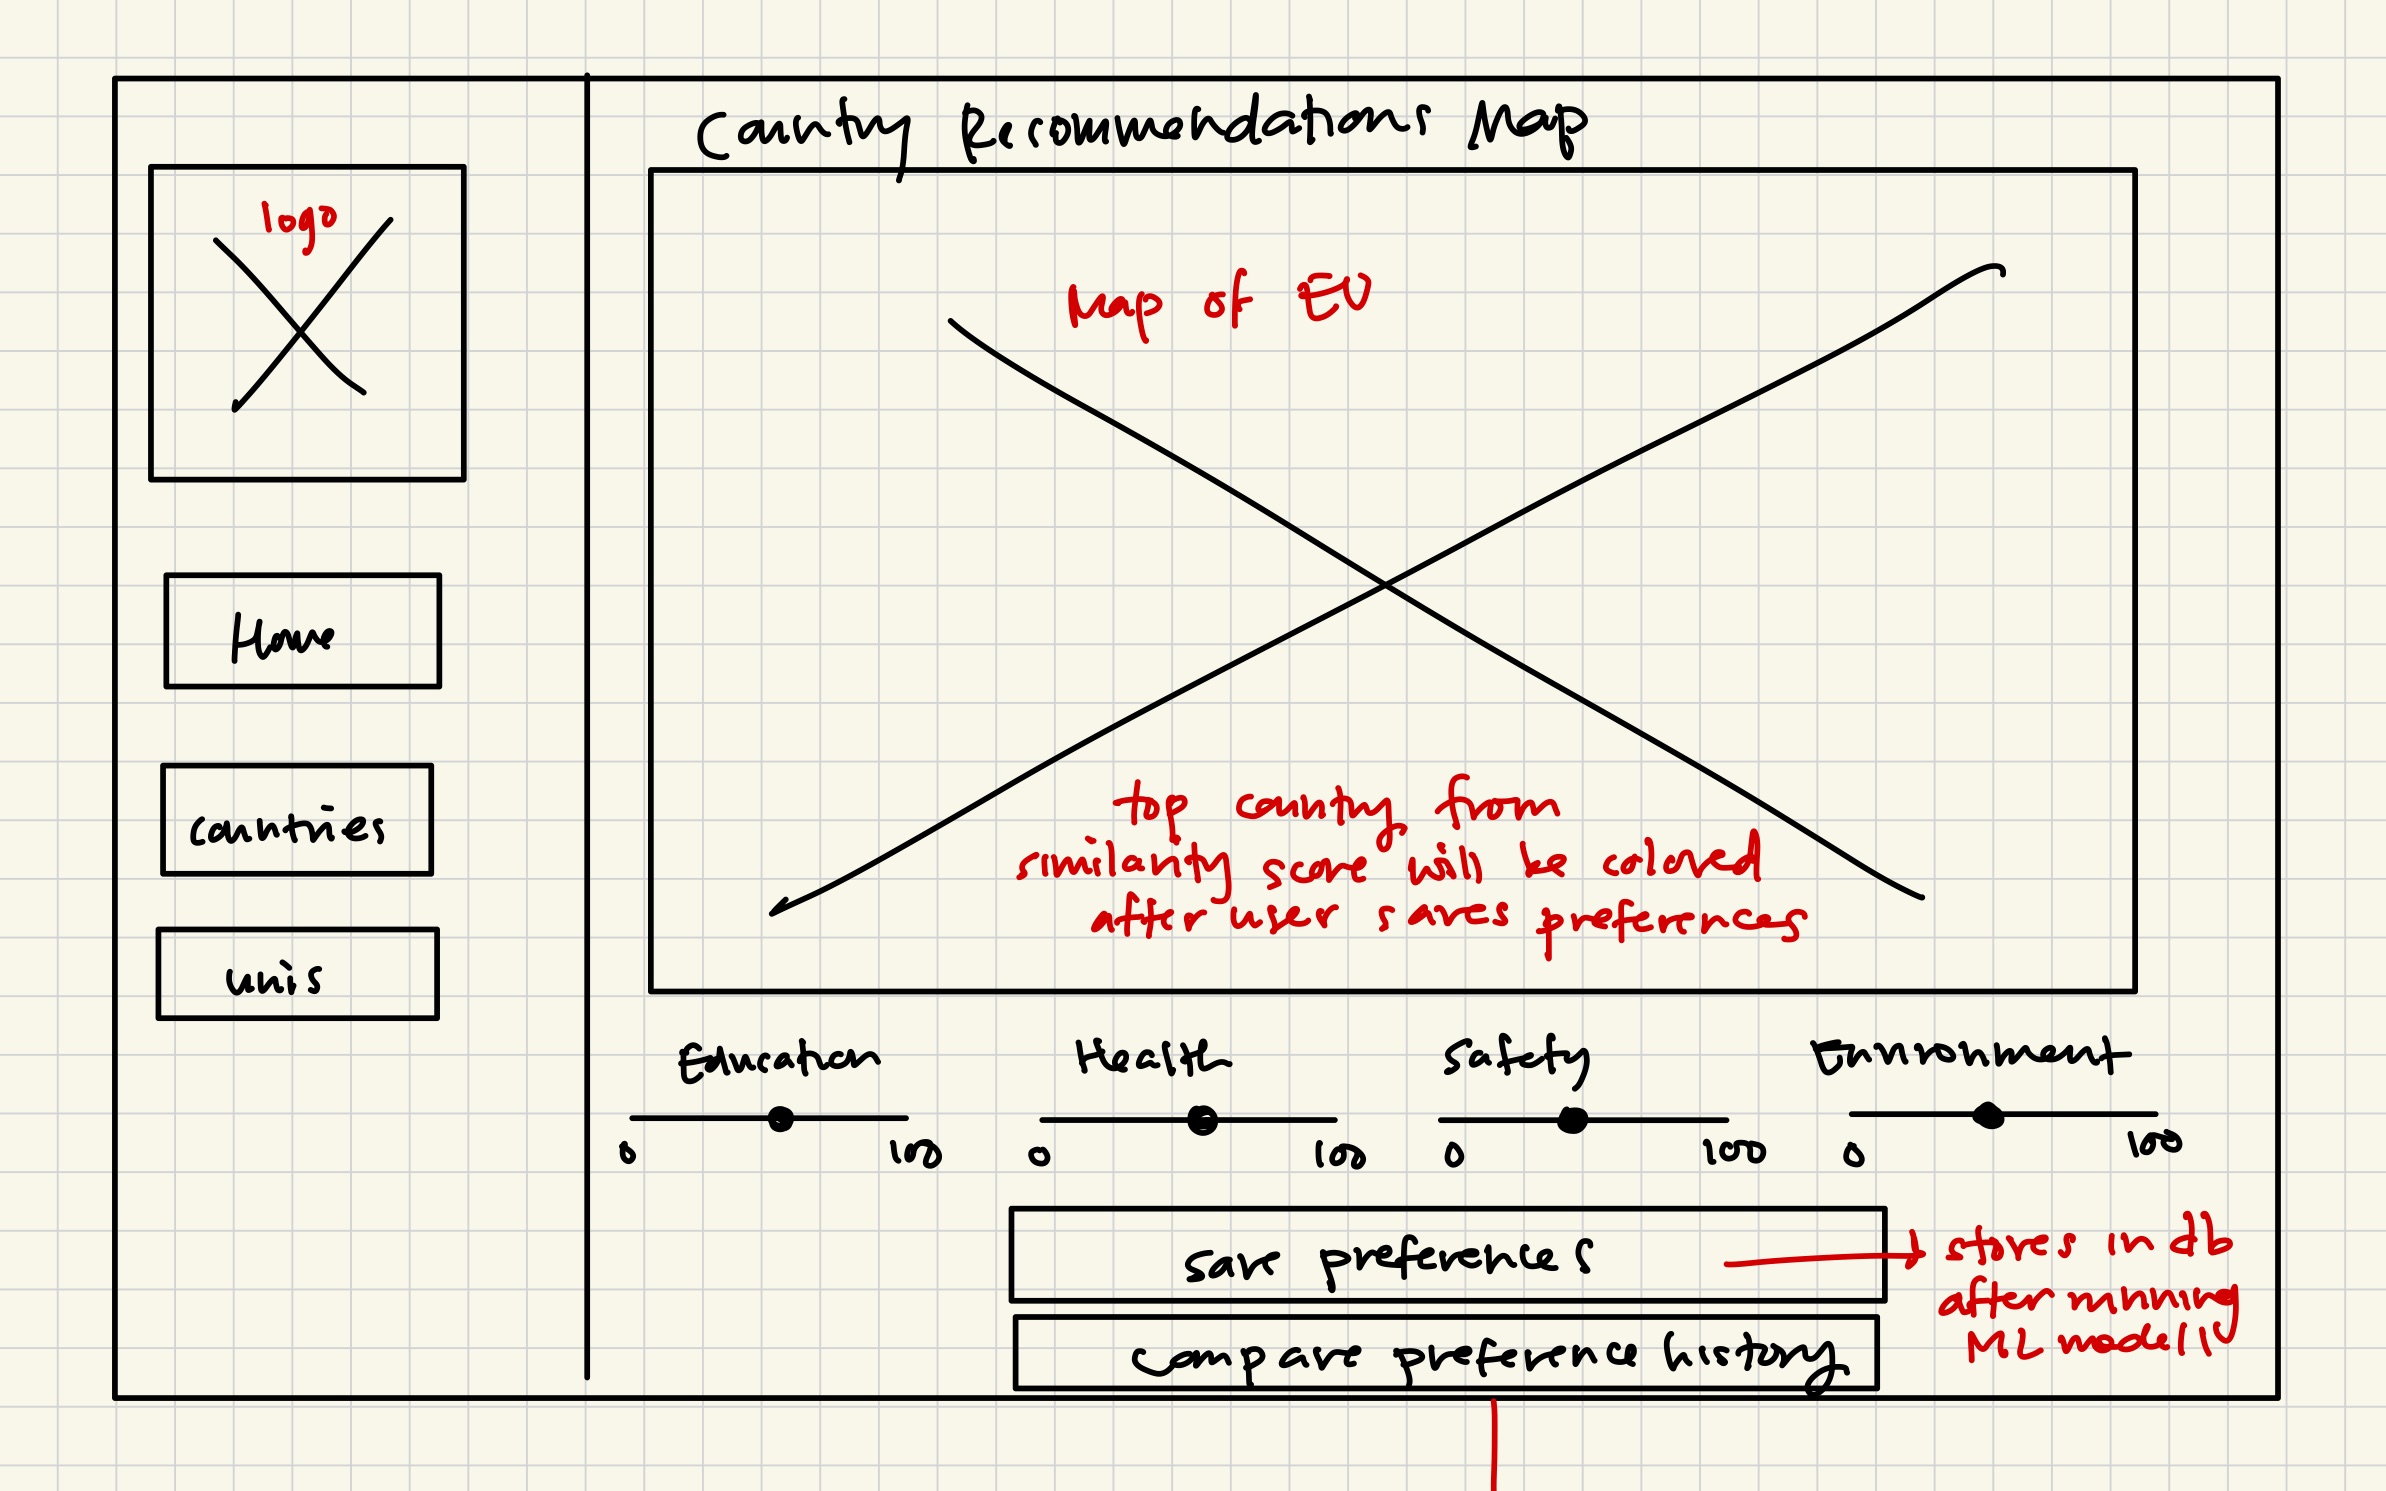 Country Recommendations Map
logo
Map of EU
Home
countries
unis
top country from
similarity score will be colored
after user saves preferences
Education
Health
Safety
Environment
0 100
0 100
0 100
0 100
save preferences
stores in db
after running
ML model 1
compare preference history